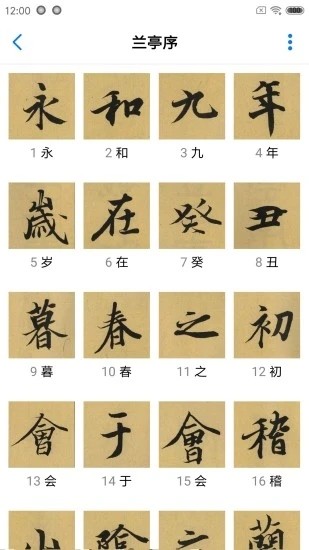 12:00
兰亭序
永 和 九 年
1 永 2 和 3 九 4 年
歲 在 癸 丑
5 岁 6 在 7 癸 8 丑
暮 春 之 初
9 暮 10 春 11 之 12 初
會 于 會 稽
13 会 14 于 15 会 16 稽
山 陰 之 蘭